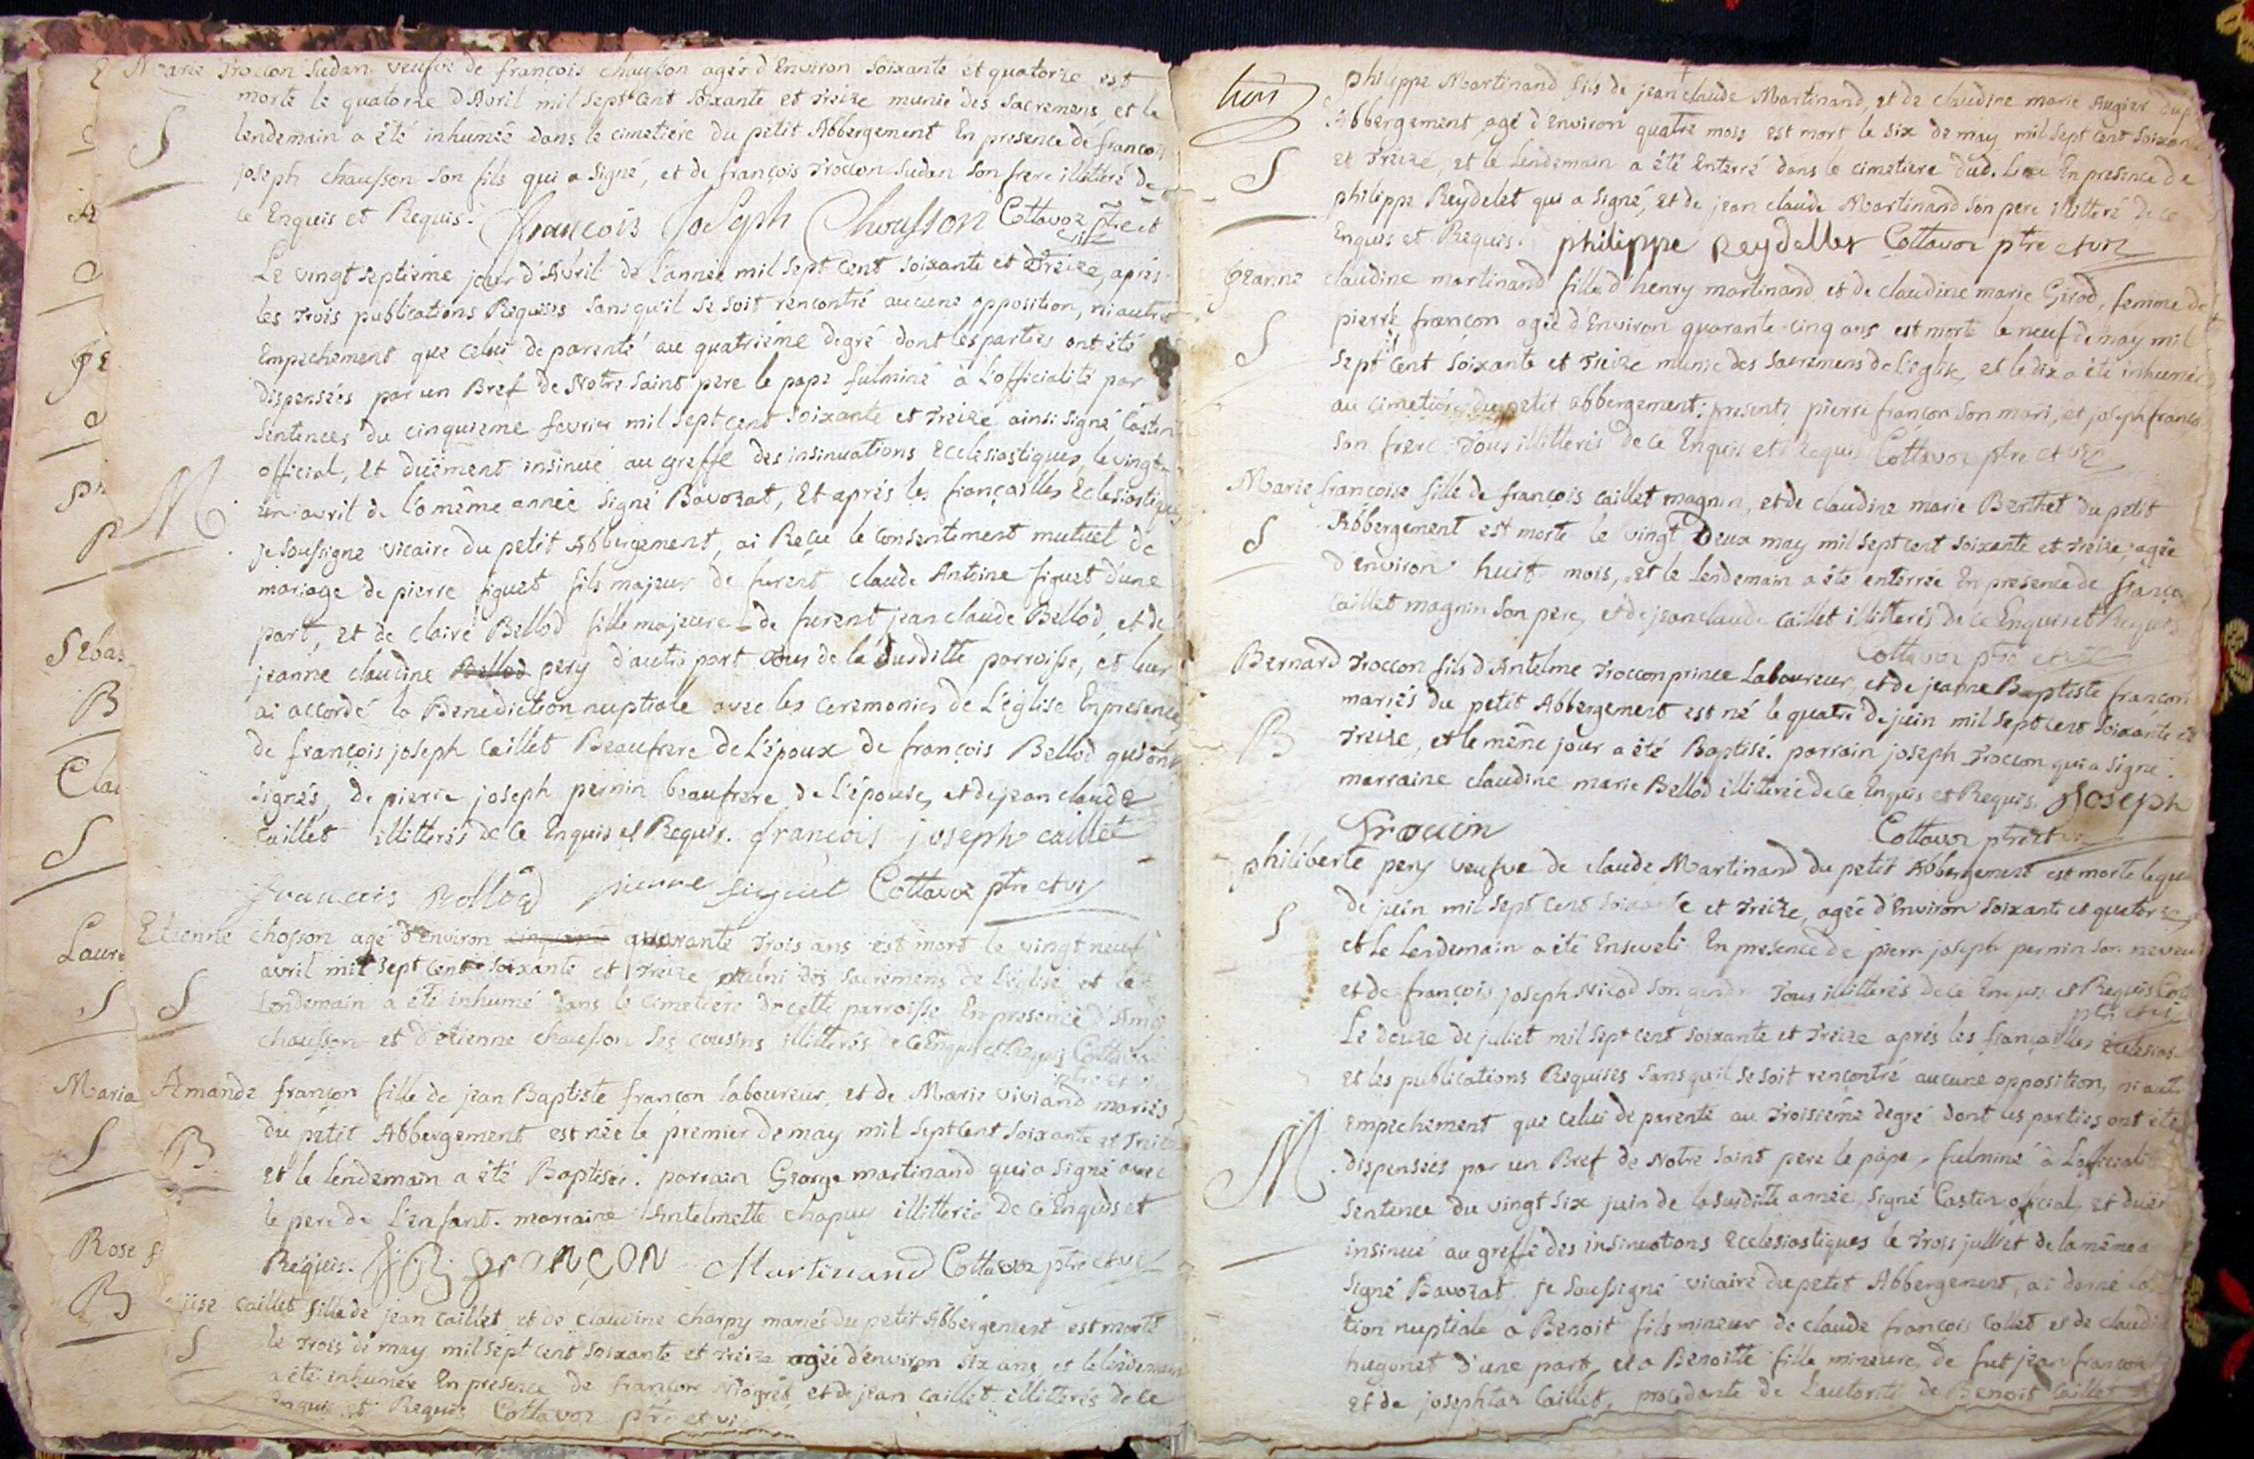 Marie Troccon Sudan veufve de françois chausson agée d'Environ Soixante et quatorze est
morte le quatorze d'Avril mil sept Cent Soixante et Treize munie des Sacremens, et le
lendemain a été inhumée dans le cimetiere du petit Abbergement En presence de françois
S
joseph chausson Son fils qui a Signé, et de françois Troccon Sudan Son frere illitteré de
ce Enquis et Requis. françois JoSeph Chousson Cottavoz ptre et
vic
Le vingt Septième jour d'Avril de l'année mil Sept Cent Soixante et Treize, après
les Trois publications Requises Sans qu'il Se Soit rencontré aucune opposition, ni autre
Empechement que celui de parenté au quatrième degré dont les parties ont été
dispensées par un Bref de Notre Saint pere le pape fulminé à l'officialité par
Sentences du cinquieme fevrier mil Sept Cent Soixante et Treize ainsi Signé
official, et düement insinué au greffe des insinuations Ecclesiastiques le vingt
M
un avril de la même année Signé Bavozat, Et après les françailles Eclesiastiques
je Soussigné vicaire du petit Abbergement, ai Reçu le Consentement mutuel de
mariage de pierre figuet fils majeur de furent Claude Antoine figuet d'une
part, et de Claire Bellod fille majeure de furent jean claude Bellod, et de
jeanne claudine Bellod pery d'autre part tous de la Susditte parroisse, et leur
ai accordé la Benediction nuptiale avec les Ceremonies de L'église En presence
de françois joseph Caillet Beaufrere de L'époux de françois Bellod qui ont
Signés, de pierre joseph pernin beaufrere de L'épouse, et de jean claude
Caillet illitterés de ce Enquis et Requis. françois joseph caillet
francois Bellod pierre figuet Cottavoz ptre et vic
Etienne chosson agé d'Environ quarante Trois ans est mort le vingt neuf
avril mil Sept Cent Soixante et Treize muni des Sacremens de l'église et le
S
Lendemain a été inhumé dans le Cimetiere de cette parroisse En presence d'
chausson et d'etienne chausson Ses cousins illitterés de ce Enquis et Requis Cottavoz
ptre et
Amande françon fille de jean Baptiste françon laboureur, et de Marie Viviand mariés
du petit Abbergement est née le premier de may mil Sept Cent Soixante et Treize
B
et le lendemain a été Baptisée. parrain George martinand qui a Signé avec
le pere de L'enfant. marraine Antelmette chapuy illitterée De ce Enquis et
Requis. JB françon Martinand Cottavoz ptre et vic
Caillet fille de jean Caillet et de Claudine Charpy mariés du petit Abbergement est morte
S
le Trois de may mil Sept cent Soixante et Treize agée d'environ Six ans, et le lendemain
a été inhumée En presence de françois Niogret et de jean Caillet illitterés de ce
Enquis et Requis Cottavoz ptre et vic
Sebas
B
Clau
S
Laure
S
Maria
S
Rose f
B
philippe Martinand fils de jean claude Martinand, et de claudine marie Augier du p
Abbergement agé d'Environ quatre mois est mort le Six de may mil Sept Cent Soixante
S
et Treize, et le lendemain a été Enterré dans le cimetiere dud. Lieu En presence de
philippe Reydelet qui a Signé, et de jean claude Martinand Son pere illitteré de ce
Enquis et Requis. philippe Reydellet Cottavoz ptre et vic
jeanne claudine martinand fille d'henry martinand et de claudine marie Girod, femme de
pierre françon agée d'Environ quarante-cinq ans est morte le neuf de may mil
S
Sept Cent Soixante et Treize munie des Sacremens de l'eglise, et le dix a été inhumée
au cimetiere du petit abbergement: presents pierre françon Son mari, et joseph franco
Son frere Tous illitterés de ce Enquis et Requis Cottavoz ptre et vic
Marie françoise fille de françois Caillet magnin, et de claudine marie Berthet du petit
Abbergement est morte le vingt Deux may mil Sept cent Soixante et Treize, agée
S
d'environ huit mois, et le lendemain a été enterrée En presence de franço
Caillet magnin Son pere, et de jean claude Caillet illitterés de ce Enquis et Requis
Cottavoz ptre et vic
Bernard Troccon fils d'Antelme Troccon prince Laboureur, et de jeanne Baptiste françon
mariés du petit Abbergement est né le quatre de juin mil Sept cent Soixante et
B
Treize, et le même jour a été Baptisé. parrain joseph Troccon qui a Signé.
marraine claudine marie Bellod illitterée de ce Enquis et Requis. joseph
Troccon Cottavoz ptre et vic
philiberte pery veufve de claude Martinand du petit Abbergement est morte le qu
S
de juin mil Sept Cent Soixante et Treize, agée d'Environ Soixante et quatorze
et le lendemain a été Enseveli En presence de pierre joseph pernin Son neveu
et de françois joseph Nicod Son gendre Tous illitterés de ce Enquis et Requis Cott
ptre et vic
Le douze de juliet mil Sept cent Soixante et Treize après les françailles Eclesias
et les publications Requises Sans qu'il Se Soit rencontré aucune opposition, ni aut
M
empechement que celui de parenté au Troisième degré dont les parties ont été
dispensées par un Bref de Notre Saint pere le pape, fulminé à L'officialité
Sentence du vingt Six juin de la Susditte année, Signé official, et duëm
insinué au greffe des insinuations Ecclesiastiques le Trois julliet de la même a
Signé Bavozat. je Soussigné vicaire du petit Abbergement, ai donné la
tion nuptiale a Benoit fils mineur de claude françois Collet et de claudi
hugonet d'une part, et a Benoitte fille mineure, de fut jean françon
et de josephtas Caillet, procedante de L'autorité de Benoit Caillet